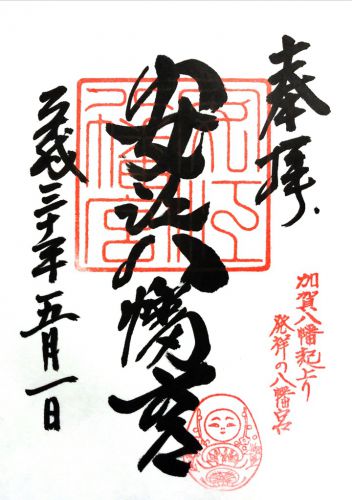 奉拝
加賀八幡起上り
発祥の八幡宮
安江八幡宮
平成三十年五月一日